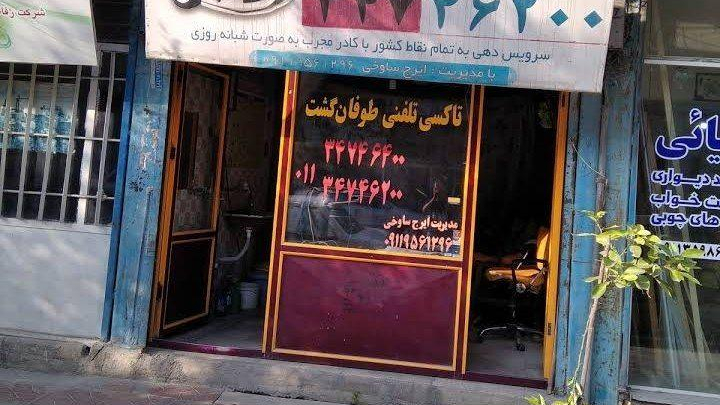 شرکت رفاه
۳۴۷ ۲۶۲۰۰
سرویس دهی به تمام نقاط کشور با کادر مجرب به صورت شبانه روزی
با مدیریت : ایرج ساوخی ۰۹۱۱۹۵۶۱۲۹۶
تاکسی تلفنی طوفان گشت
۳۴۷۴۶۴۰۰
۰۱۱ ۳۴۷۴۶۲۰۰
مدیریت ایرج ساوخی
۰۹۱۱۹۵۶۱۲۹۶
یائی
د دیواری
ت خواب
های چوبی